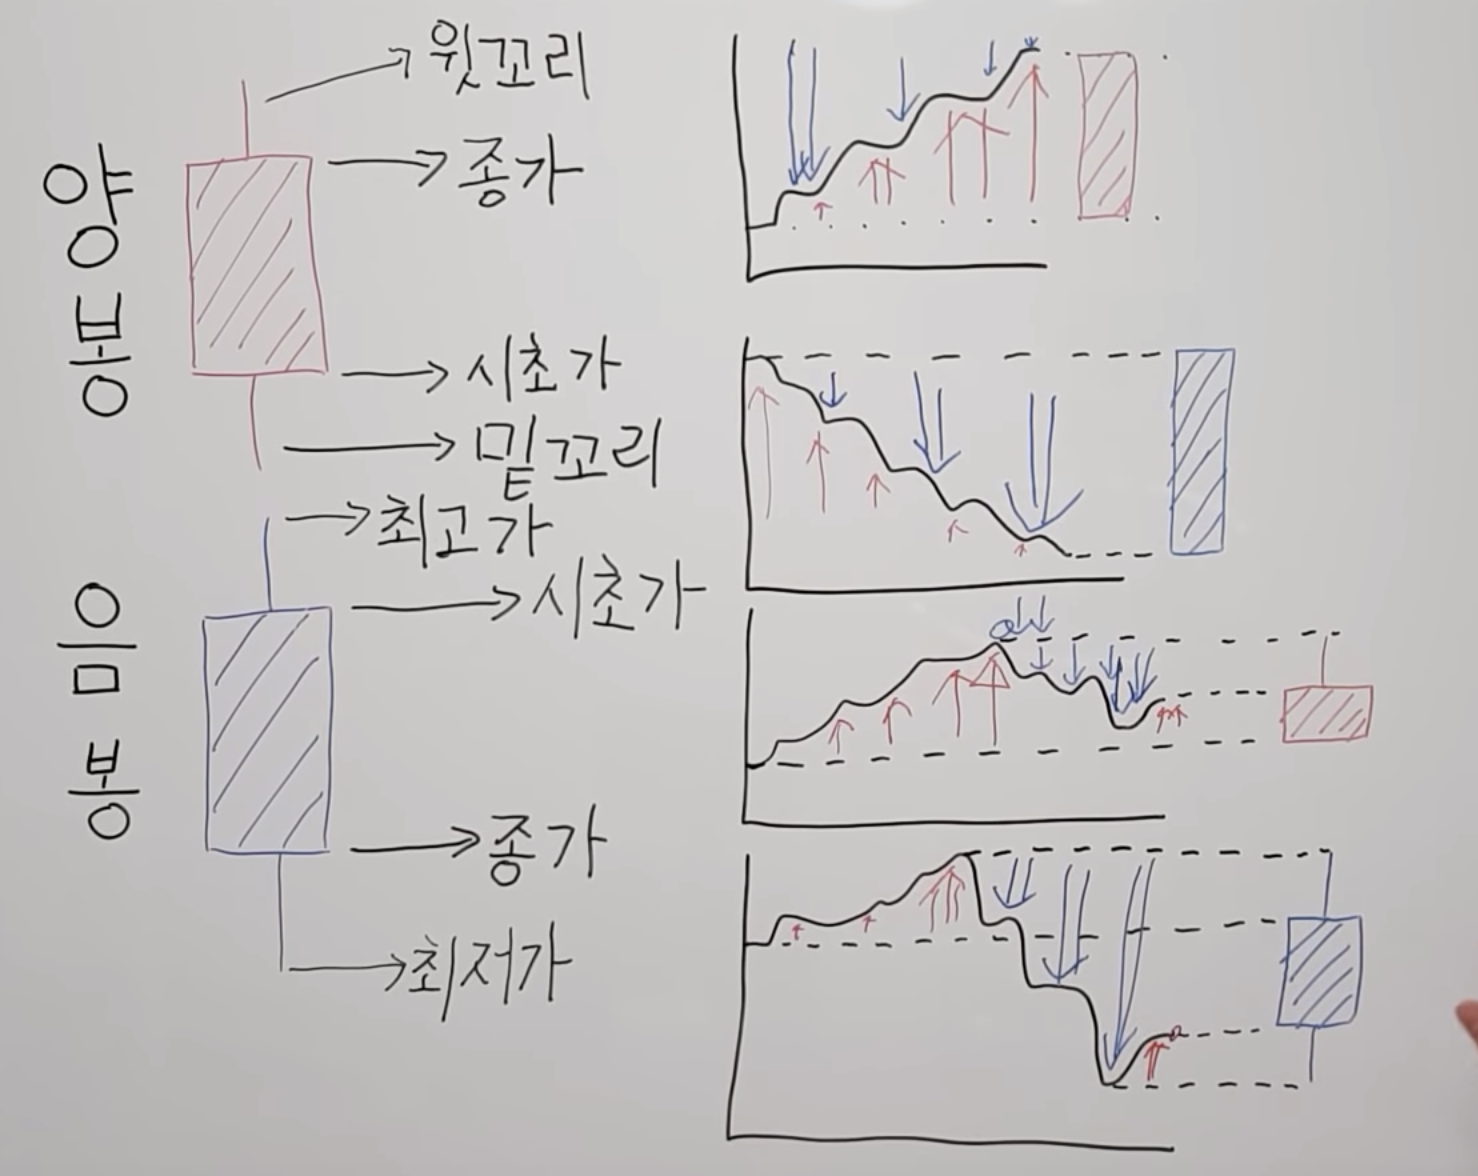 양봉
윗꼬리
종가
시초가
밑꼬리
음봉
최고가
시초가
종가
최저가